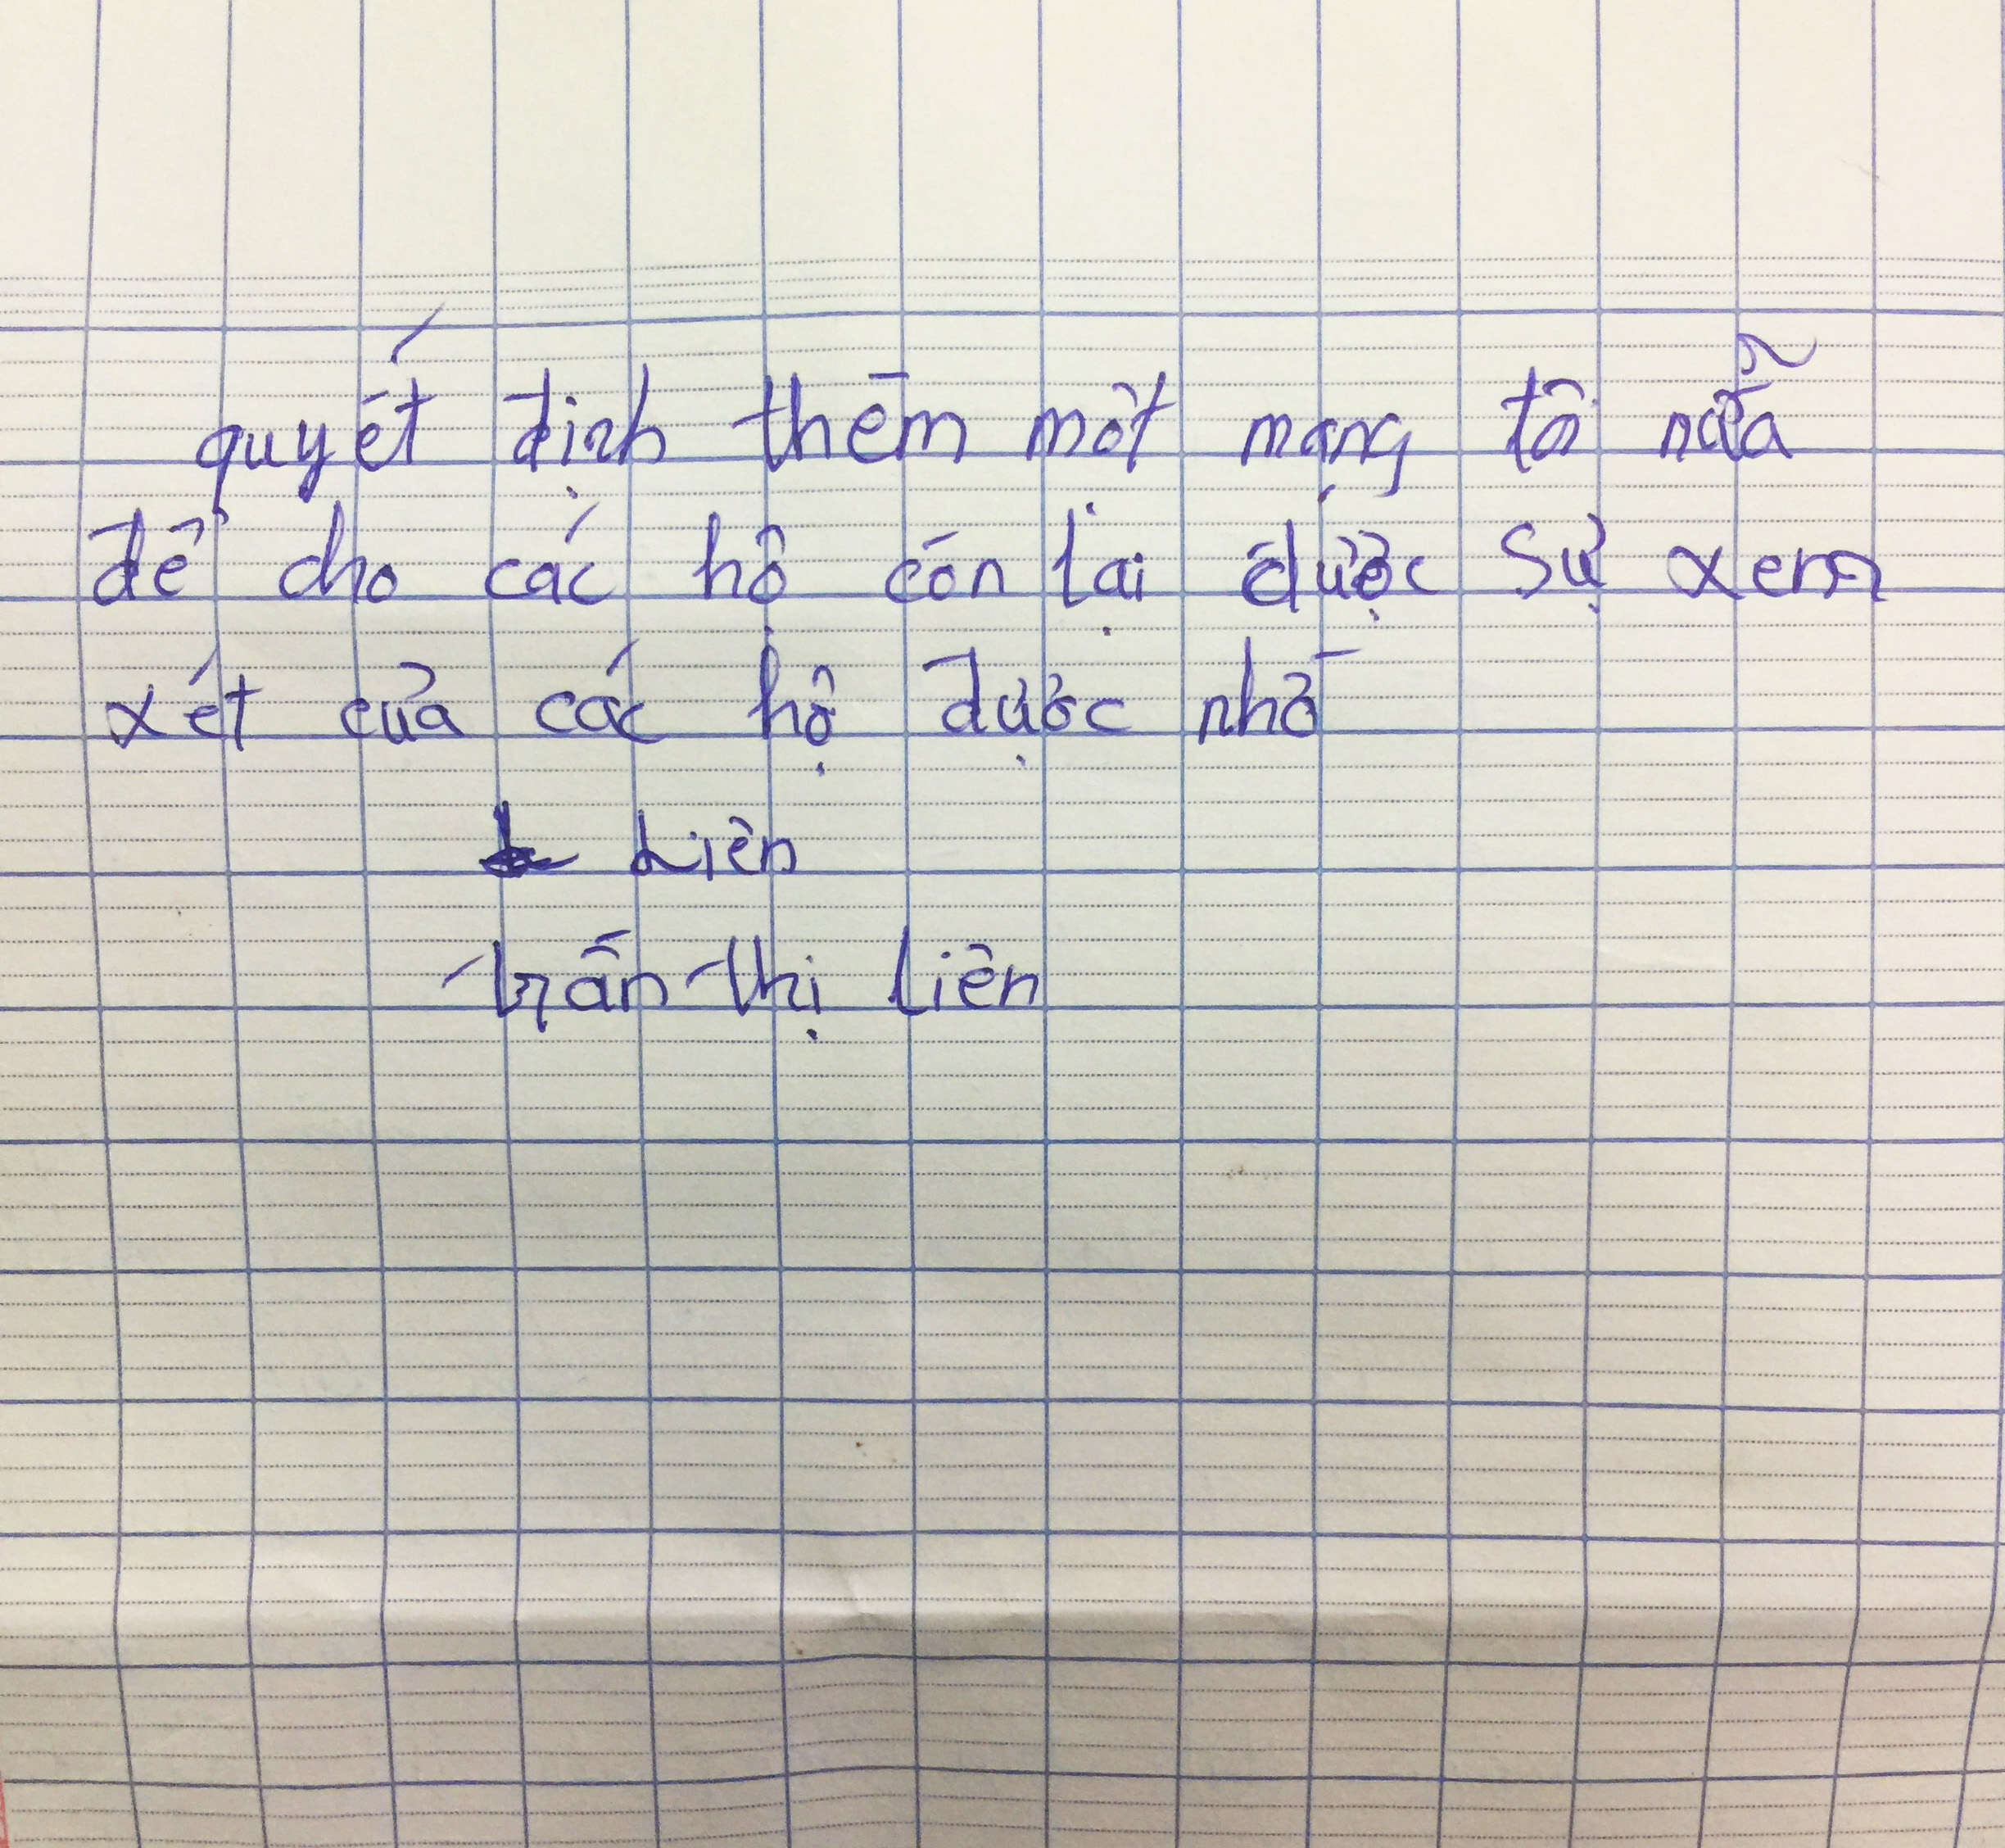 quyết định thêm một mạng tô nữa
để cho các hộ còn lại được sự xem
xét của các hộ được nhờ
Liên
trần thị liên